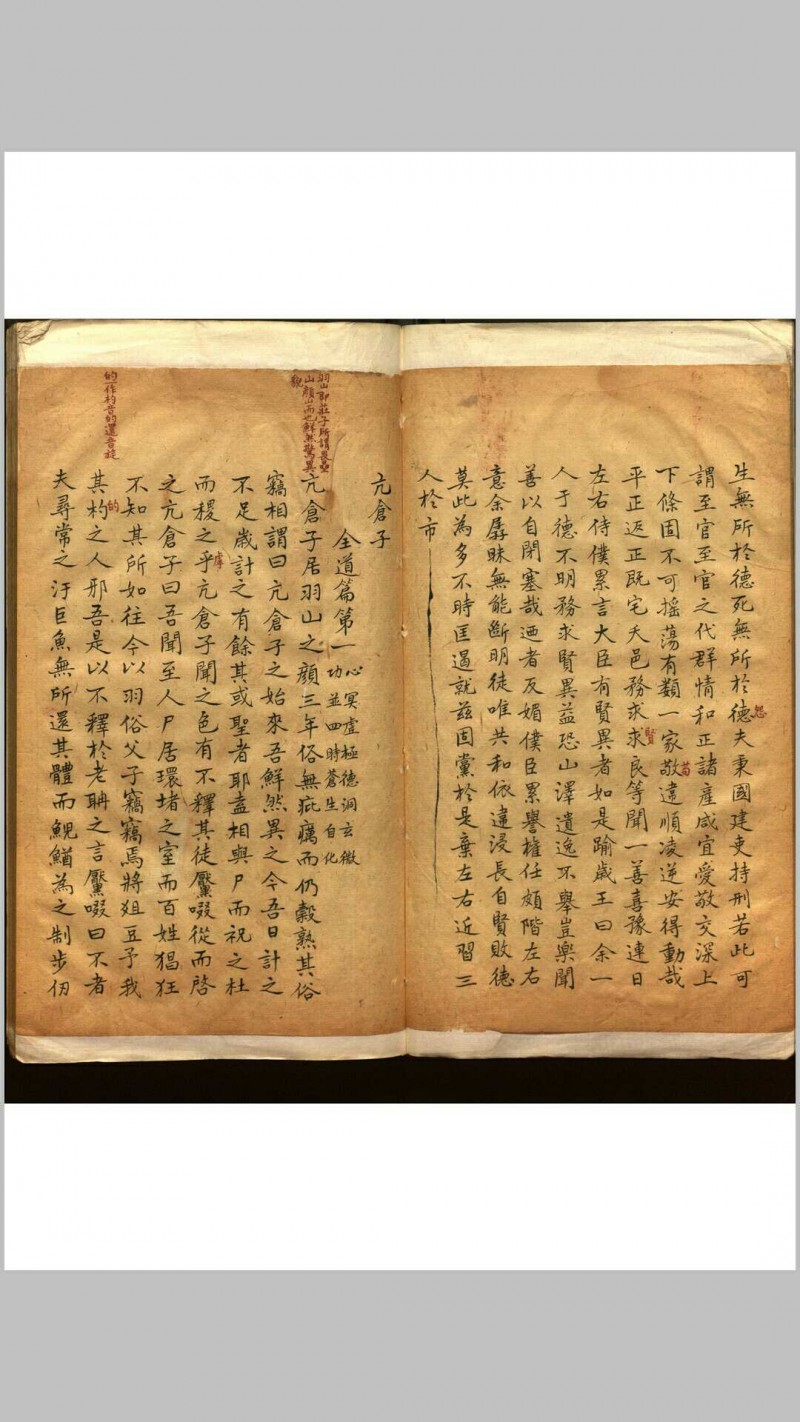 生無所於德死無所於德夫秉國建吏持刑若此可
怨
謂至官至官之代群情和正諸產咸宜愛敬交深上
下條固不可搖蕩有類一家敬違順凌逆安得動哉
苟
平正返正既宅天邑務求求良等聞一善喜豫連日
賢
左右侍僕累言大臣有賢異者如是踰歲王曰余一
人于德不明務求賢異益恐山澤遺逸不舉豈樂聞
善以自閉塞哉迺者反媚僕臣累譽權任頗階左右
意余孱昧無能斷明徒唯共和依違浸長自賢敗德
莫此為多不時匡遏就兹固黨於是棄左右近習三
人於市
亢倉子
全道篇第一
心冥虛極德洞玄微
功並四時蒼生自化
羽山即莊子所謂畏壘
山顏山而也鮮然驚異
貌
亢倉子居羽山之顔三年俗無疵癘而仍穀熟其俗
竊相謂曰亢倉子之始來吾鮮然異之今吾日計之
不足歲計之有餘其或聖者耶盍相與尸而祝之杜
而稷之乎亢倉子聞之色有不釋其徒黶啜從而啓
庫
之亢倉子曰吾聞至人尸居環堵之室而百姓猖狂
不知其所如往今以羽俗父子竊竊焉將俎豆予我
其杓之人邪吾是以不釋於老聃之言黶啜曰不者
的
的一作杓音的還音旋
夫尋常之汙巨魚無所還其體而鯢鰌為之制步仞